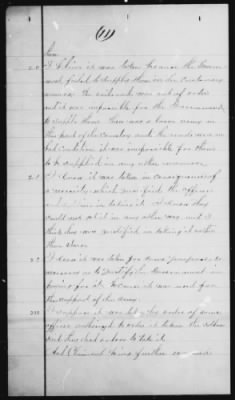 (11)
him
20 I think it was taken because the Govern
ment failed to supply them in the customary
manner. The railroads were out of order
and it was impossible for the Government
to supply them. There was a large army in
that part of the country and the roads were in
bad condition it was impossible for them
to be supplied in any other manner.
21 I know it was taken in consequence of
a necessity which justified the officers
in taking it. I know they
could not get it in any other way and I
think they was justified in taking it rather
than starve
22 I know it was taken for some purpose so
necessary as to justify the Government in
paying for it, because it was used for
the support of the army.
23 I suppose it was by the order of some
officer authorized to order it taken the soldiers
said they had orders to take it.
And Deponent being further